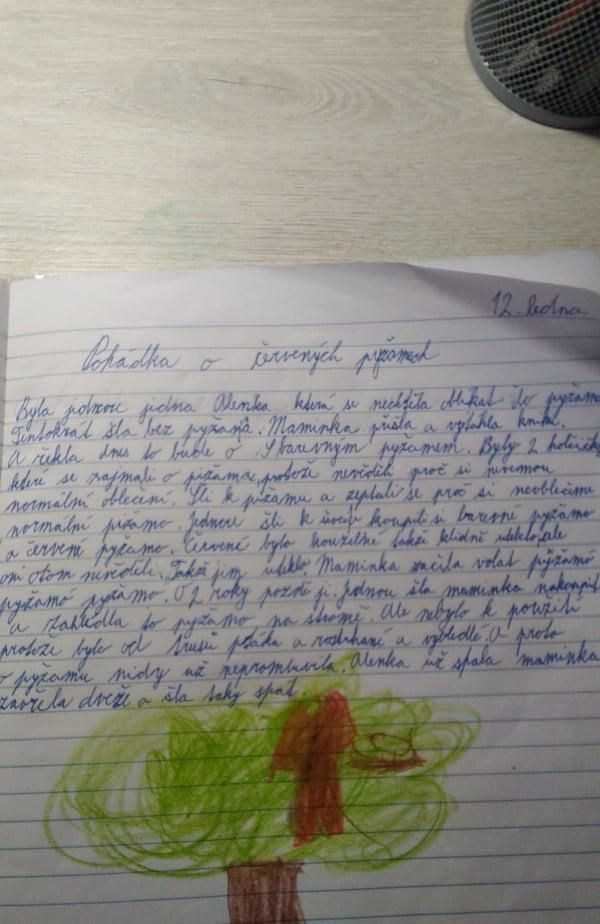 12. ledna
Pohádka o červených pyžamech
Byla jednou jedna Alenka která se nechtěla oblíkat do pyžama
Tentokrát šla bez pyžama. Maminka přišla a vytáhla knihu.
A řekla dnes to bude o barevným pyžamem. Byly 2 holčičky
které se zajmali o pižama, protože nevěděli proč si nevemou
normální oblečení. Šli k pižamu a zeptali se proč si neoblečeme
normalní pižamo. Jednou šli k koupili si barevné pyžamo
a červení pyžamo. Červené bylo kouzelné takže klidně uteklo, ale
oni otom nevěděli. Takže jim uteklo. Maminka začla volat pyžamo
pyžamó pyžamo. O 2 roky pozdě ji. Jednou šla maminka nakoupit
a zahlédla to pyžamo na stromě. Ale nebylo k použití
protože bylo od trusů ptáka a roztrhané a vybledlé. A proto
o pyžamu nidy už nepromluvila. Alenka už spala maminka
zavřela dveře a šla taky spat.